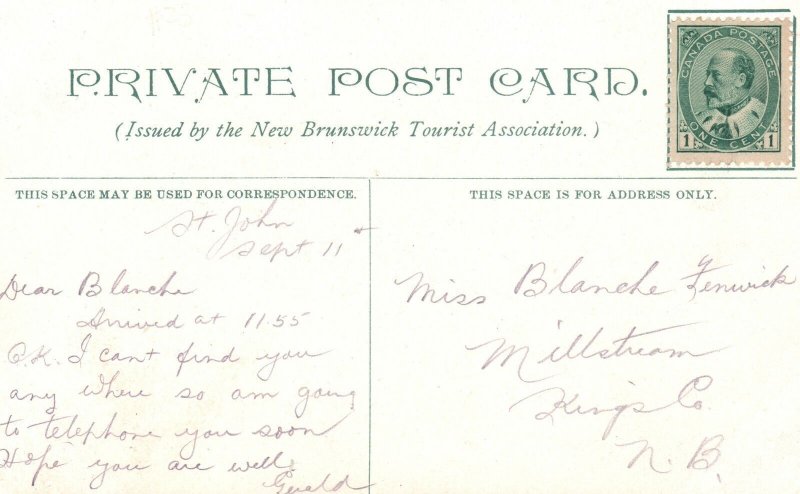 PRIVATE POST CARD.
(Issued by the New Brunswick Tourist Association.)
CANADA POSTAGE
ONE CENT
1 1
THIS SPACE MAY BE USED FOR CORRESPONDENCE.
St. John
Sept 11
Dear Blanche
Arrived at 11.55
O.K. I cant find you
any where so am going
to telephone you soon
Hope you are well
Gerald
THIS SPACE IS FOR ADDRESS ONLY.
Miss Blanche Fenwick
Millstream
Kings Co.
N. B.